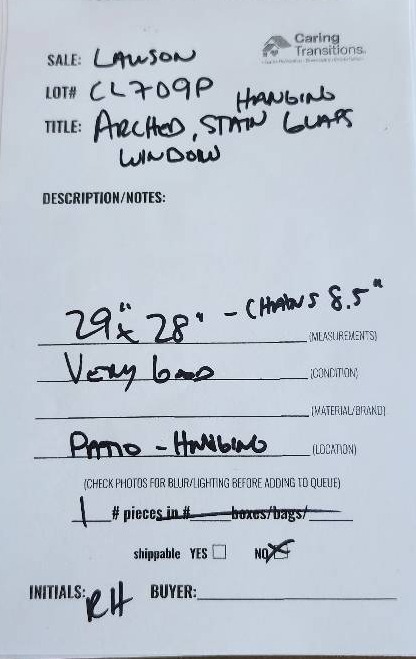 Caring
Transitions
SALE: LAWSON
LOT# CL709P
HANGING
TITLE: ARCHED, STAIN GLASS
WINDOW
DESCRIPTION/NOTES:
29" x 28" - CHAINS 8.5"
(MEASUREMENTS)
VERY GOOD (CONDITION)
(MATERIAL/BRAND)
PATIO - HANGING (LOCATION)
(CHECK PHOTOS FOR BLUR/LIGHTING BEFORE ADDING TO QUEUE)
1 # pieces in # boxes/bags/
shippable YES NO
INITIALS: RH BUYER: